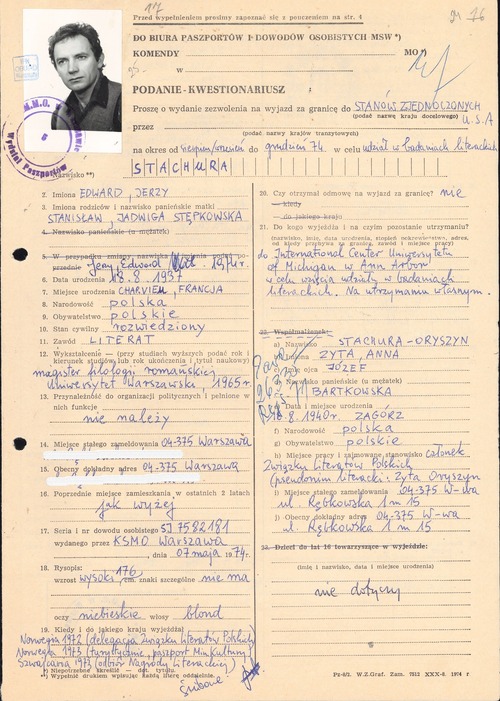 Przed wypełnieniem prosimy zapoznać się z pouczeniem na str. 4
DO BIURA PASZPORTÓW I DOWODÓW OSOBISTYCH MSW*)
KOMENDY MO*)
w
PODANIE-KWESTIONARIUSZ
Proszę o wydanie zezwolenia na wyjazd za granicę do STANÓW ZJEDNOCZONYCH
(podać nazwę kraju docelowego) U.S.A
przez
(podać nazwy krajów tranzytowych)
na okres od sierpień/wrzesień do grudzień 74. w celu udział w badaniach literackich
STACHURA
1. Nazwisko **)
2. Imiona EDWARD, JERZY
3. Imiona rodziców i nazwisko panieńskie matki
STANISŁAW, JADWIGA STĘPKOWSKA
4. Nazwisko panieńskie (u mężatek)
5. W przypadku zmiany nazwiska
przednie Jerzy Edward
6. Data urodzenia 18.8.1937
7. Miejsce urodzenia CHARVIEU, FRANCJA
8. Narodowość polska
9. Obywatelstwo polskie
10. Stan cywilny rozwiedziony
11. Zawód LITERAT
12. Wykształcenie — (przy studiach wyższych podać rok i
kierunek studiów lub rok ukończenia i tytuł naukowy)
magister filologii romańskiej
Uniwersytet Warszawski, 1965 r.
13. Przynależność do organizacji politycznych i pełnione w
nich funkcje
nie należy
14. Miejsce stałego zameldowania 04-375 Warszawa
15. Obecny dokładny adres 04-375 Warszawa
16. Poprzednie miejsce zamieszkania w ostatnich 2 latach
jak wyżej
17. Seria i nr dowodu osobistego SJ 7582181
wydanego przez KSMO Warszawa
, dnia 07 maja 1974.
18. Rysopis:
wzrost wysoki 176 cm. znaki szczególne nie ma
oczy niebieskie włosy blond
19. Kiedy i do jakiego kraju wyjeżdżał
Norwegia 1972 (delegacja Związku Literatów Polskich)
Norwegia 1973 (turystycznie, paszport Min Kultury)
Szwajcaria 1973 (odbiór Nagrody Literackiej)
*) Niepotrzebne skreślić — det. tytułu.
**) Wypełnić drukiem wpisując każdą literę oddzielnie.
20. Czy otrzymał odmowę na wyjazd za granicę? nie
— kiedy
— do jakiego kraju
21. Do kogo wyjeżdża i na czyim pozostanie utrzymaniu?
(nazwisko, imię, data urodzenia, stopień pokrewieństwa, adres,
od kiedy przebywa za granicą, zawód i miejsce pracy)
do International Center Uniwersytetu
of Michigan w Ann Arbor
w celu wzięcia udziału w badaniach
literackich. Na utrzymaniu własnym.
22. Współmałżonek:
a) Nazwisko STACHURA-ORYSZYN
b) Imiona ZYTA, ANNA
c) Imię ojca JÓZEF
d) Nazwisko panieńskie (u mężatek)
BARTKOWSKA
e) Data i miejsce urodzenia
8.1940. ZAGÓRZ
f) Narodowość polska
g) Obywatelstwo polskie
h) Miejsce pracy i zajmowane stanowisko członek
Związku Literatów Polskich
(pseudonim literacki: Zyta Oryszyn
i) Miejsce stałego zameldowania 04-375 W-wa
ul. Rębkowska 1 m 15
j) Obecny dokładny adres 04-375 W-wa
ul. Rębkowska 1 m 15
23. Dzieci do lat 16 towarzyszące w wyjeździe:
(imię i nazwisko, data i miejsce urodzenia)
nie dotyczy
Pz-8/2. W.Z.Graf. Zam. 7313 XXX-8. 1974 r